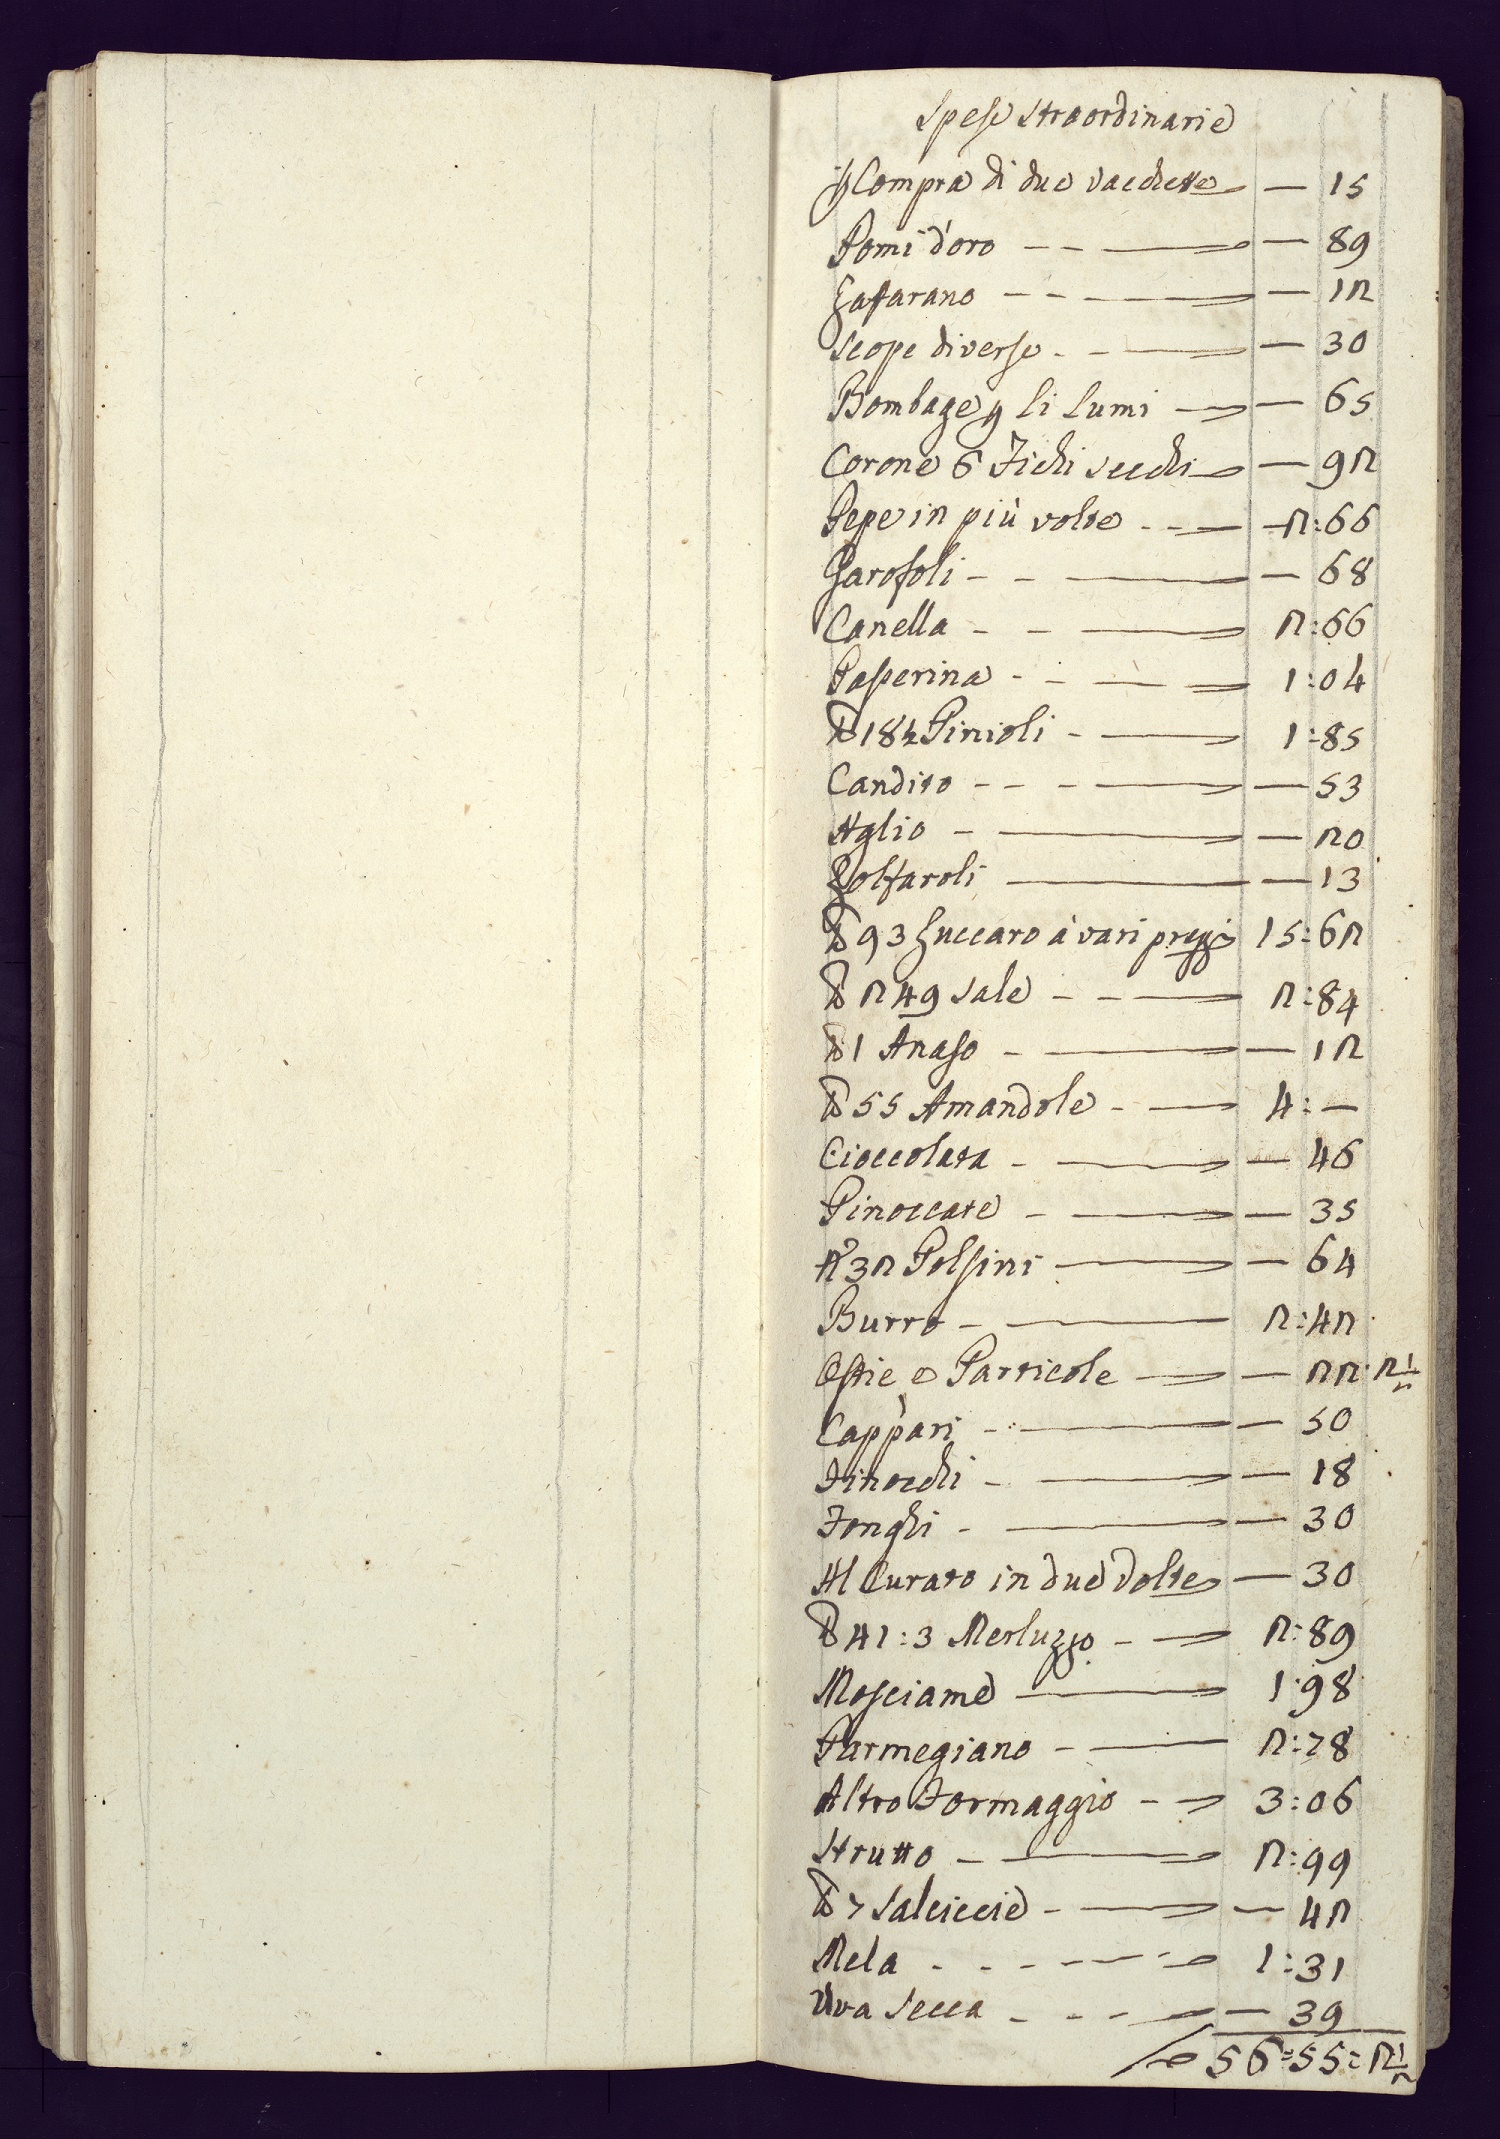 Spese straordinarie
Compra di due Vacchette — 15
Pomi d'oro — 89
Zafarano — 12
Scope diverse — 30
Bombage p li Lumi — 65
Corone 6 Fichi secchi — 92
Pepe in più volte — 2:66
Garofoli — 68
Canella — 2:66
Passerina — 1:04
℔ 18½ Pinioli — 1:85
Candito — 53
Aglio — 20
Zolfaroli — 13
℔ 93 Zuccaro à vari prezzi 15:62
℔ 249 Sale — 2:84
℔ 1 Anaso — 12
℔ 55 Amandole — 4:—
Cioccolata — 46
Pinoccate — 35
N° 32 Polsini — 64
Burro — 2:42
Ostie e Particole — 22:2½
Cappari — 50
Finocchi — 18
Fonghi — 30
Al Curato in due Volte — 30
℔ 41:3 Merluzzo — 2:89
Mosciame — 1:98
Parmegiano — 2:78
Altro Formaggio — 3:06
Strutto — 2:99
℔ 7 Salciccie — 42
Mela — 1:31
Uva Secca — 39
56=55=2½